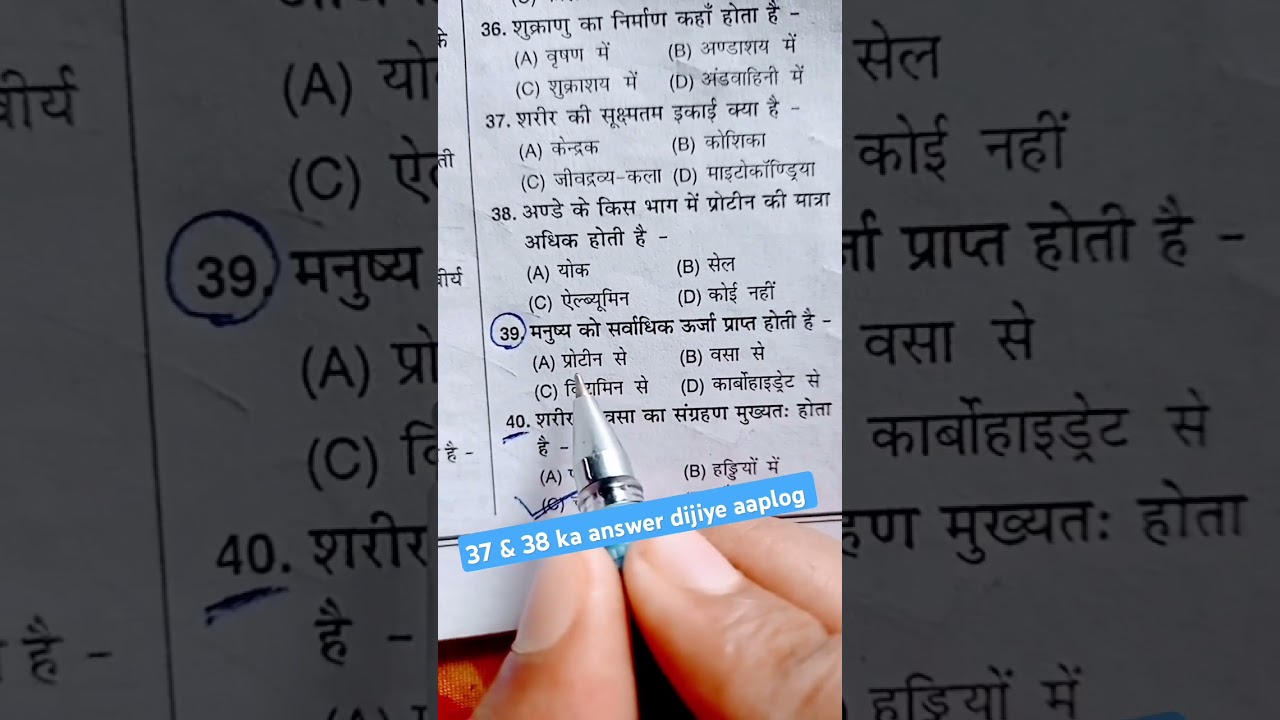 36. शुक्राणु का निर्माण कहाँ होता है -
(A) वृषण में (B) अण्डाशय में
(C) शुक्राशय में (D) अंडवाहिनी में
37. शरीर की सूक्ष्मतम इकाई क्या है -
(A) केन्द्रक (B) कोशिका
(C) जीवद्रव्य-कला (D) माइटोकॉण्ड्रिया
38. अण्डे के किस भाग में प्रोटीन की मात्रा
अधिक होती है -
(A) योक (B) सेल
(C) ऐल्ब्यूमिन (D) कोई नहीं
39. मनुष्य को सर्वाधिक ऊर्जा प्राप्त होती है -
(A) प्रोटीन से (B) वसा से
(C) से (D) कार्बोहाइड्रेट से
40. वसा का संग्रहण मुख्यतः होता
है -
(A) (B) हड्डियों में
(C)
37 & 38 ka answer dijiye aaplog
वीर्य
(A)
(C)
39. मनुष्य
(A)
(C)
40.
है -
(A)
सेल
कोई नहीं
प्राप्त होती है -
वसा से
कार्बोहाइड्रेट से
मुख्यतः होता
हड्डियों में